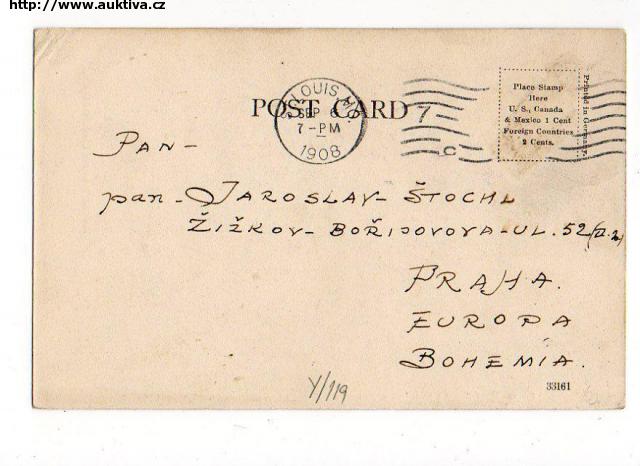 http://www.auktiva.cz
ST. LOUIS, MO.
SEP 6
7-PM
1908
POST CARD
7
C
Place Stamp
Here
U. S., Canada
& Mexico 1 Cent
Foreign Countries
2 Cents.
Printed in Germany.
PAN-
pan - JAROSLAV - ŠTOCHL
ŽIŽKOV - BOŘIVOVOVA - UL. 52/II.
PRAHA.
EUROPA
BOHEMIA.
Y/119
33161